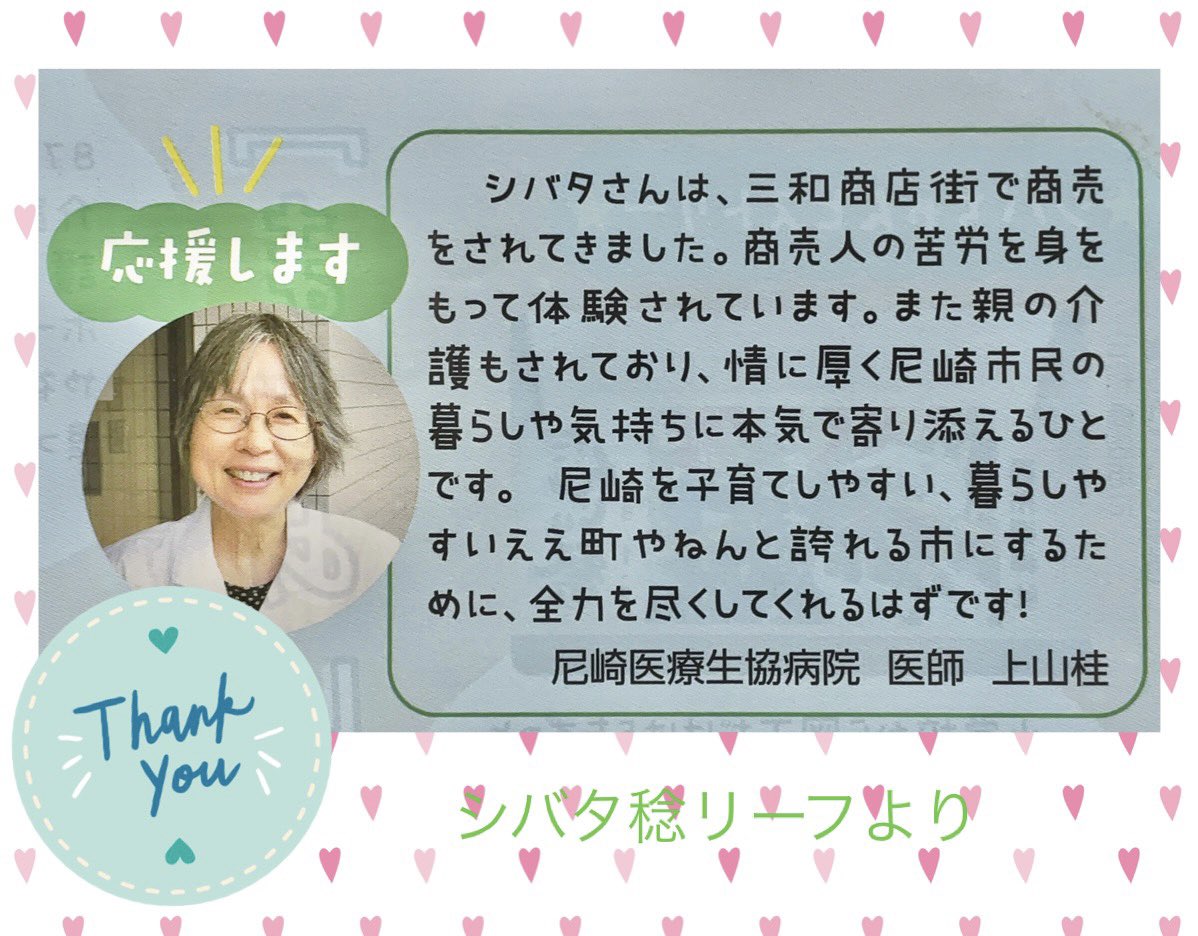 応援します
シバタさんは、三和商店街で商売
をされてきました。商売人の苦労を身を
もって体験されています。また親の介
護もされており、情に厚く尼崎市民の
暮らしや気持ちに本気で寄り添えるひと
です。 尼崎を子育てしやすい、暮らしや
すいええ町やねんと誇れる市にするた
めに、全力を尽くしてくれるはずです!
尼崎医療生協病院 医師 上山桂
Thank
you
シバタ稔リーフより